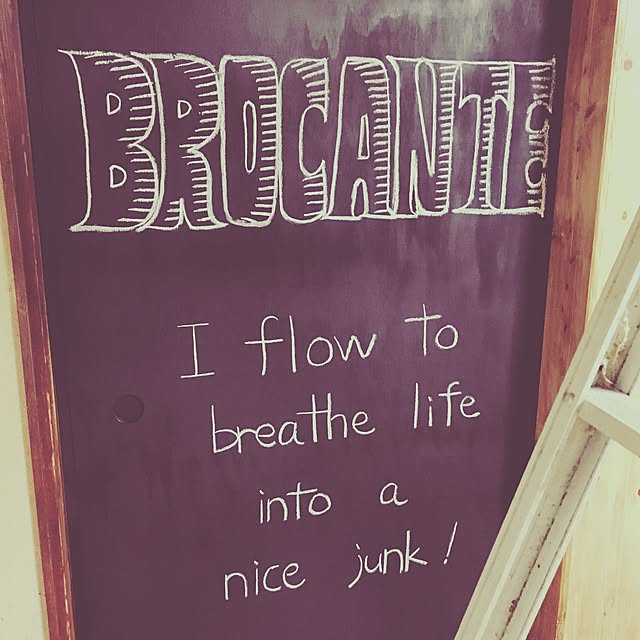 BROCANTE
I flow to
breathe life
into a
nice junk!